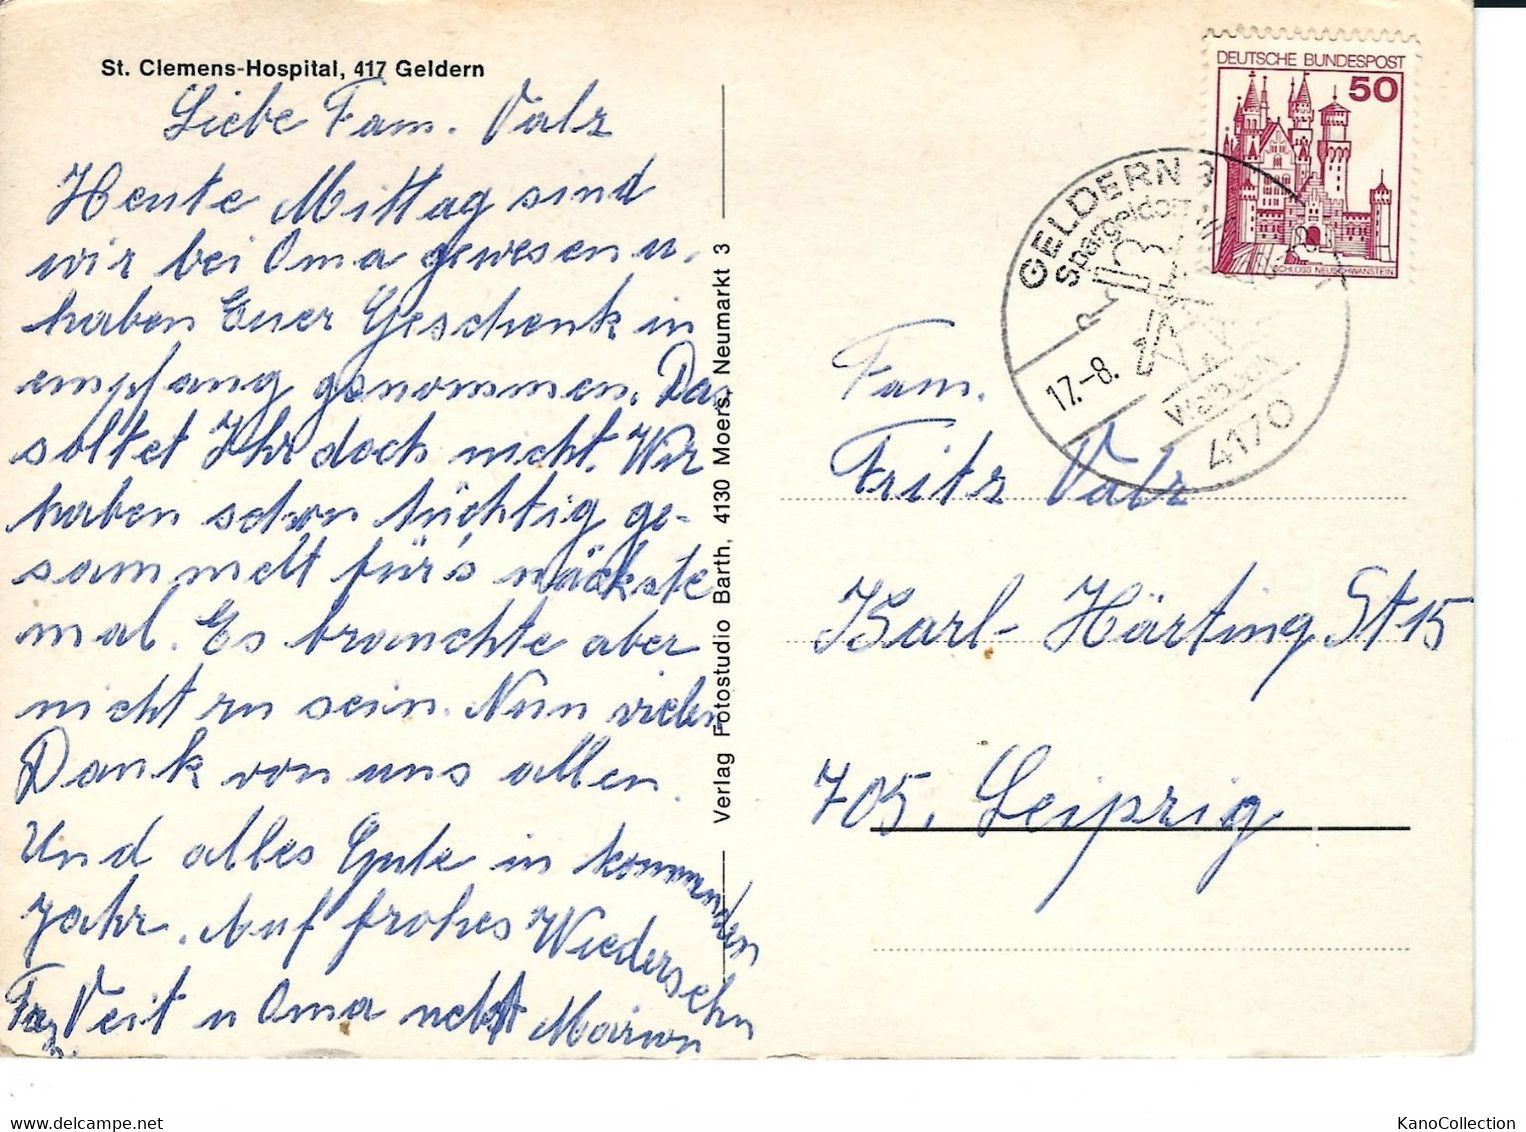 St. Clemens-Hospital, 417 Geldern
Liebe Fam. Valz
Heute Mittag sind
wir bei Oma gewesen u.
haben Euer Geschenk in
empfang genommen. Das
soltet Ihr doch nicht. Wir
haben schon tüchtig ge-
sammelt für's nächste
mal. Es brauchte aber
nicht zu sein. Nun vielen
Dank von uns allen.
Und alles Gute in kommenden
Jahr. Auf frohes Wiedersehn
Veit u Oma nebst Marion
Verlag Fotostudio Barth, 4130 Moers, Neumarkt 3
DEUTSCHE BUNDESPOST
50
SCHLOSS NEUSCHWANSTEIN
GELDERN 3
Spargeldorf
17.-8.
Walbeck
4170
Fam.
Fritz Valz
Karl-Härting St 15
705, Leipzig
KanoCollection